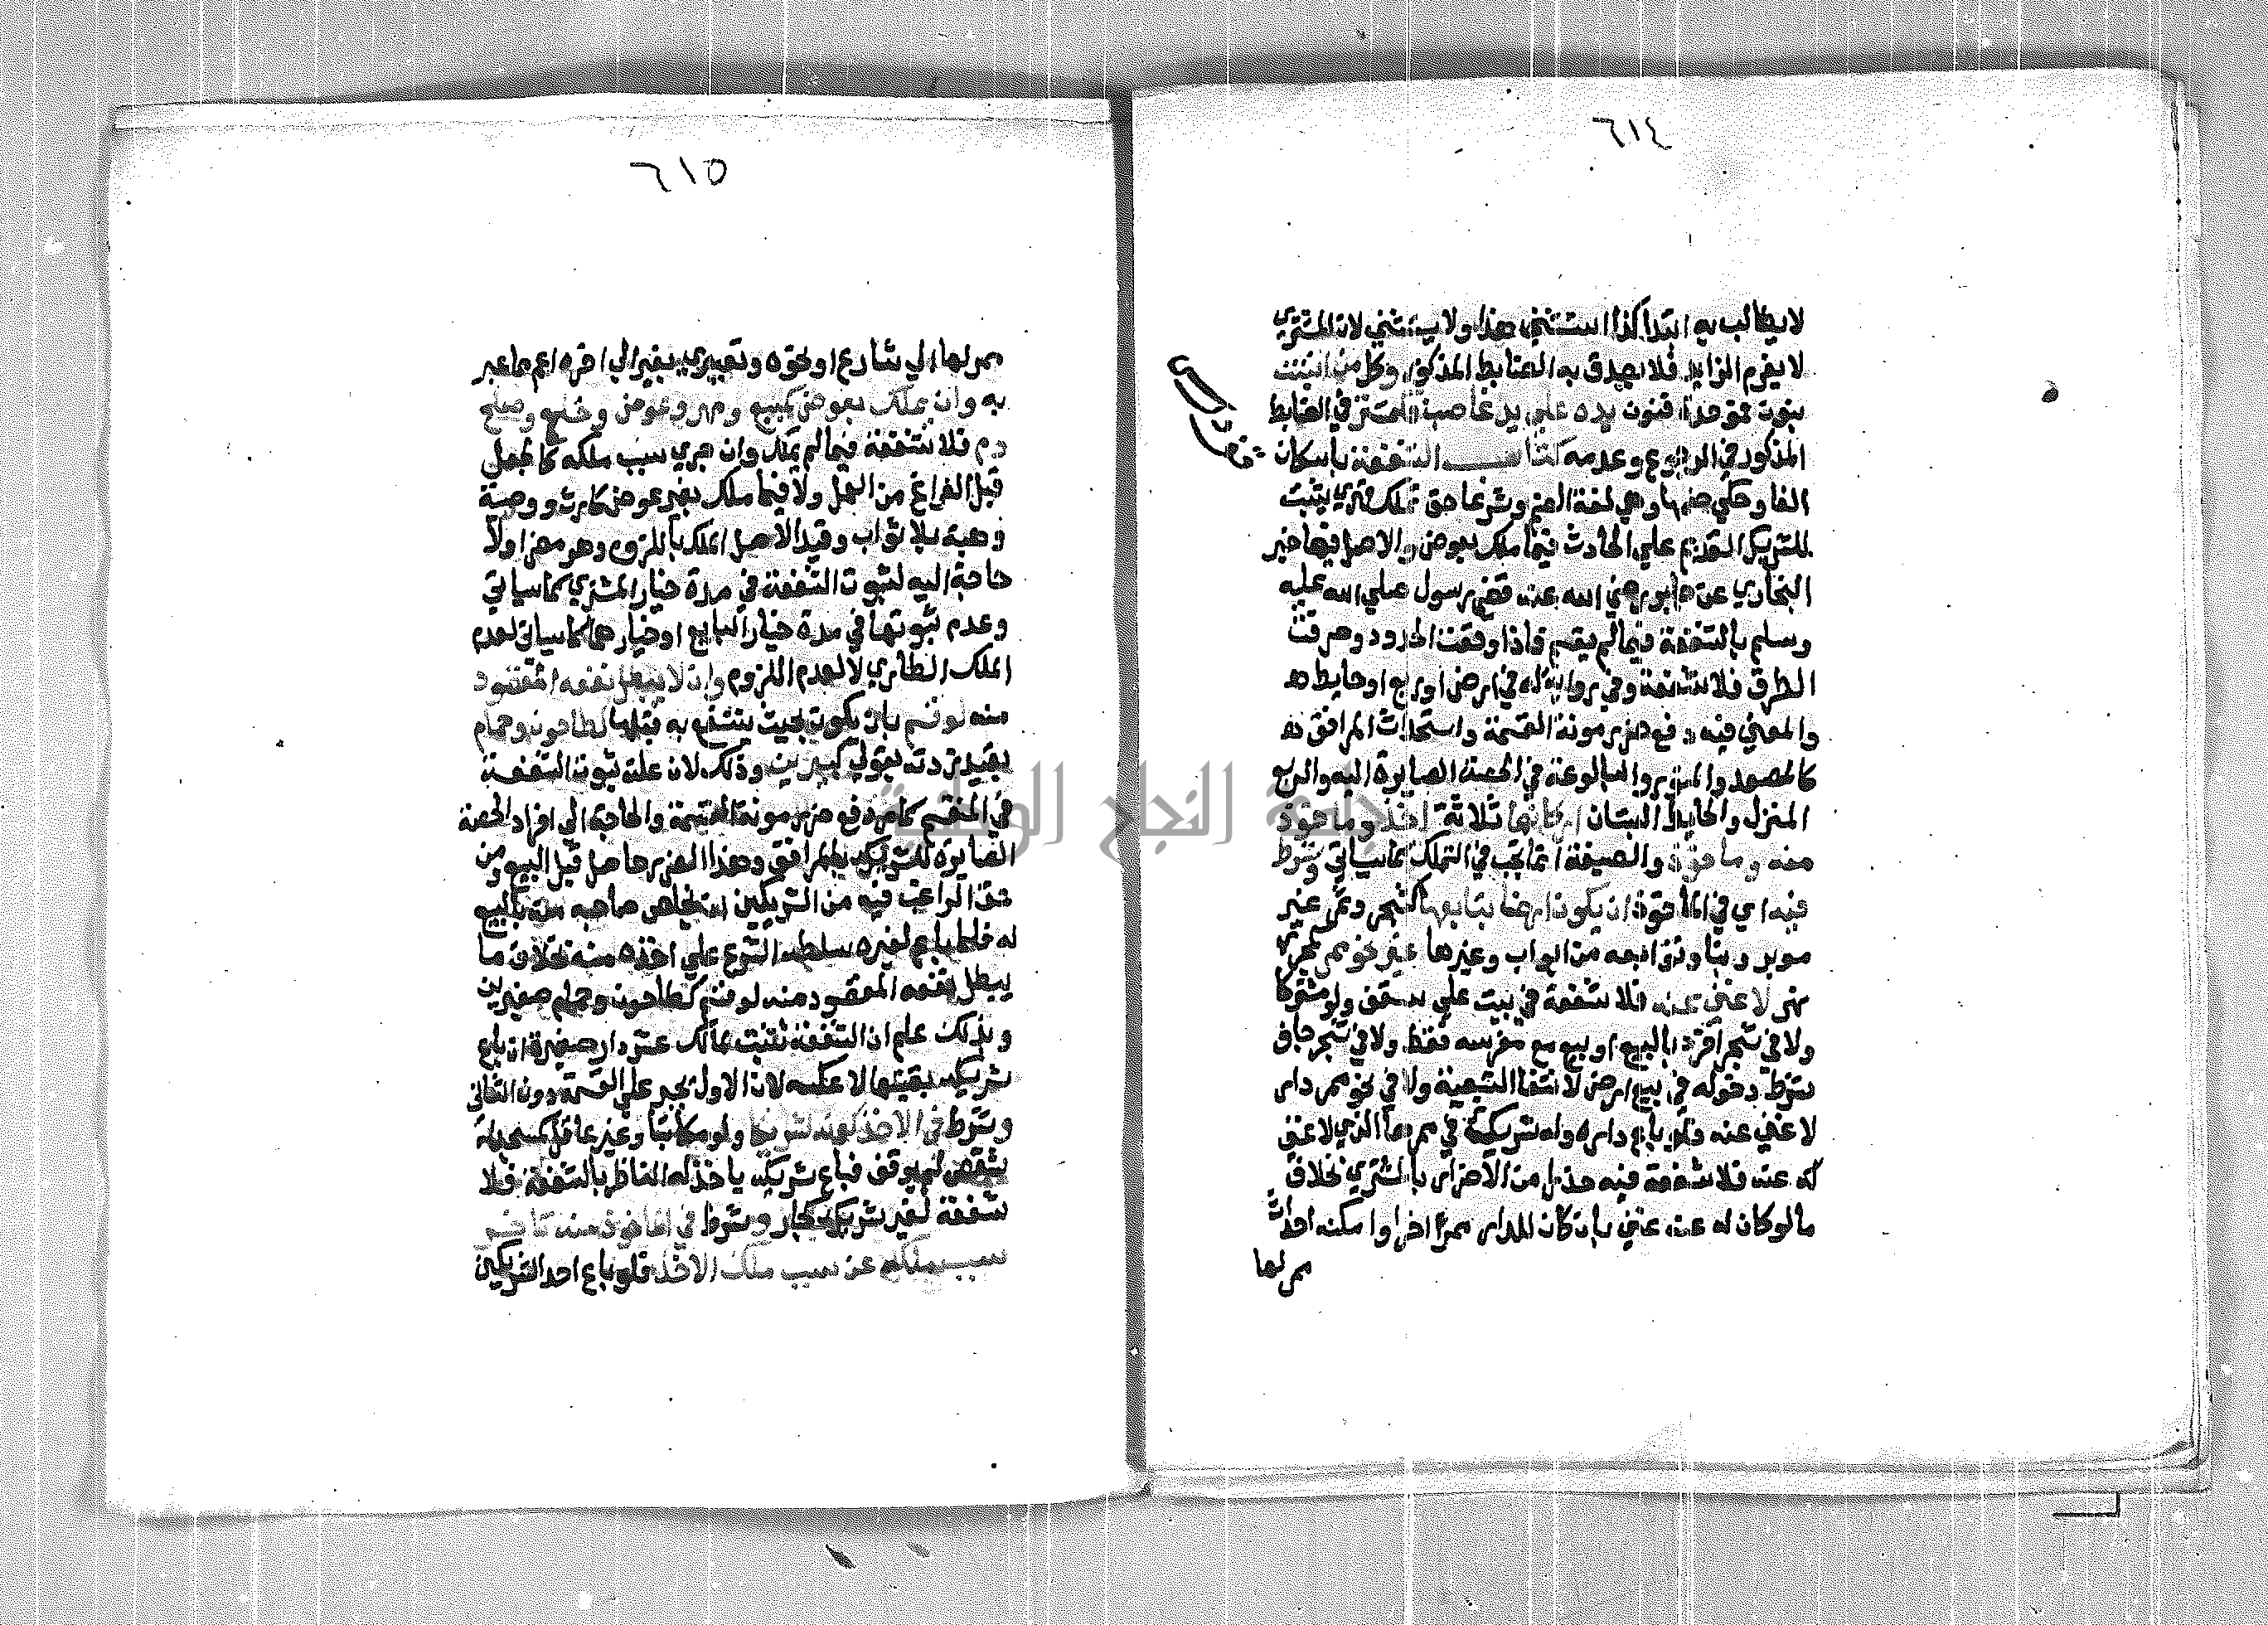 ٦١٤
لا يطالب به ابتدا كذا استثني هذا ولا يستثني لان المشتري
لا يغرم الزايد فلا يصدق به الضابط المذكور وكل من انبنت
يده علي يد غاصب في الضابط
المذكور في الرجوع وعدمه كتاب الشفعة باسكان
الفا وحكي ضمها وهي لغة الضم وشرعا حق تملك قهري يثبت
للشريك القديم علي الحادث فيما ملك بعوض والاصل فيها خبر
البخاري عن جابر رضي الله عنه قضي رسول الله صلي الله عليه
وسلم بالشفعة فيما لم يقسم فاذا وقعت الحدود وصرفت
الطرق فلا شفعة وفي رواية له في ارض او ربع او حايط
والمعني فيه دفع ضرر مونة القسمة واستحداث المرافق
كالمصعد والمنور والبالوعة في الحصة الصايرة اليه والربع
المنزل والحايط البستان اركانها ثلاثة اخذ وماخوذ
منه وماخوذ والصيغة انما تجب في التملك كما سياتي وشرط
فيه اي في الماخوذ ان يكون ارضا بتابعها كشجر وثمر غير
موبر وبنا وتوابعه من ابواب وغيرها غير نحو ممر كمجري
نهر لا غني عنه فلا شفعة في بيت علي سقف ولو مشتركا
ولا في شجر افرد بالبيع او بيع مع مغرسه فقط ولا في شجر جاف
شرط دخوله في بيع ارض لانتفا التبعية ولا في نحو ممر دار
لا غني عنه فلو باع داره وله شريك في ممرها الذي لا غني
له عنه فلا شفعة فيه حذرا من الاضرار بالمشتري بخلاف
ما لو كان له عنه غني بان كان للدار ممر اخر او امكنه احداث
ممر لها
٦١٥
ممر لها الي شارع او نحوه وتعبيري بغير الي اخره اعم مما عبر
به وان يملك بعوض كمبيع ومهر وعوض وخلع وصلح
دم فلا شفعة فيما لم يملك وان جري سبب ملكه كالجعل
قبل الفراغ من العمل ولا فيما ملك بغير عوض كارث ووصية
وهبة بلا ثواب وقيد الاصل الملك باللزوم وهو مضر اولا
حاجة اليه لثبوت الشفعة في مدة خيار المشتري كما سياتي
وعدم ثبوتها في مدة خيار البايع او خيارهما كما سياتي لعدم
الملك الطاري لا لعدم اللزوم وان لا يبطل نفعه المقصود
منه لو قسم بان يكون بحيث ينتفع به قبلها كطاحون وحمام
بقيد زدته بقولي كبيرين وذلك لان علة ثبوت الشفعة
في المنقسم كما مر دفع ضرر مونة القسمة والحاجة الي افراد الحصة
الصايرة للشريك بالمرافق وهذا الضرر حاصل قبل البيع ومن
حق الراغب فيه من الشريكين ان يخلص صاحبه منه بالبيع
له فلما باع لغيره سلطه الشرع علي اخذه منه بخلاف ما
يبطل نفعه المقصود منه لو قسم كطاحون وحمام صغيرين
وبذلك علم ان الشفعة تثبت لمالك عشر دار صغيرة ان باع
شريكه بقيتها لا عكسه لان الاول يجبر علي القسمة دون الثاني
وشرط في الاخذ كونه شريكا ولو مكاتبا وغير عاقل كمسجد له
شقص لم يوقف فباع شريكه ياخذ له الناظر بالشفعة فلا
شفعة لغير شريك كجار وشرط في الماخوذ منه تاخر
سبب ملكه عن سبب ملك الاخذ فلو باع احد الشريكين